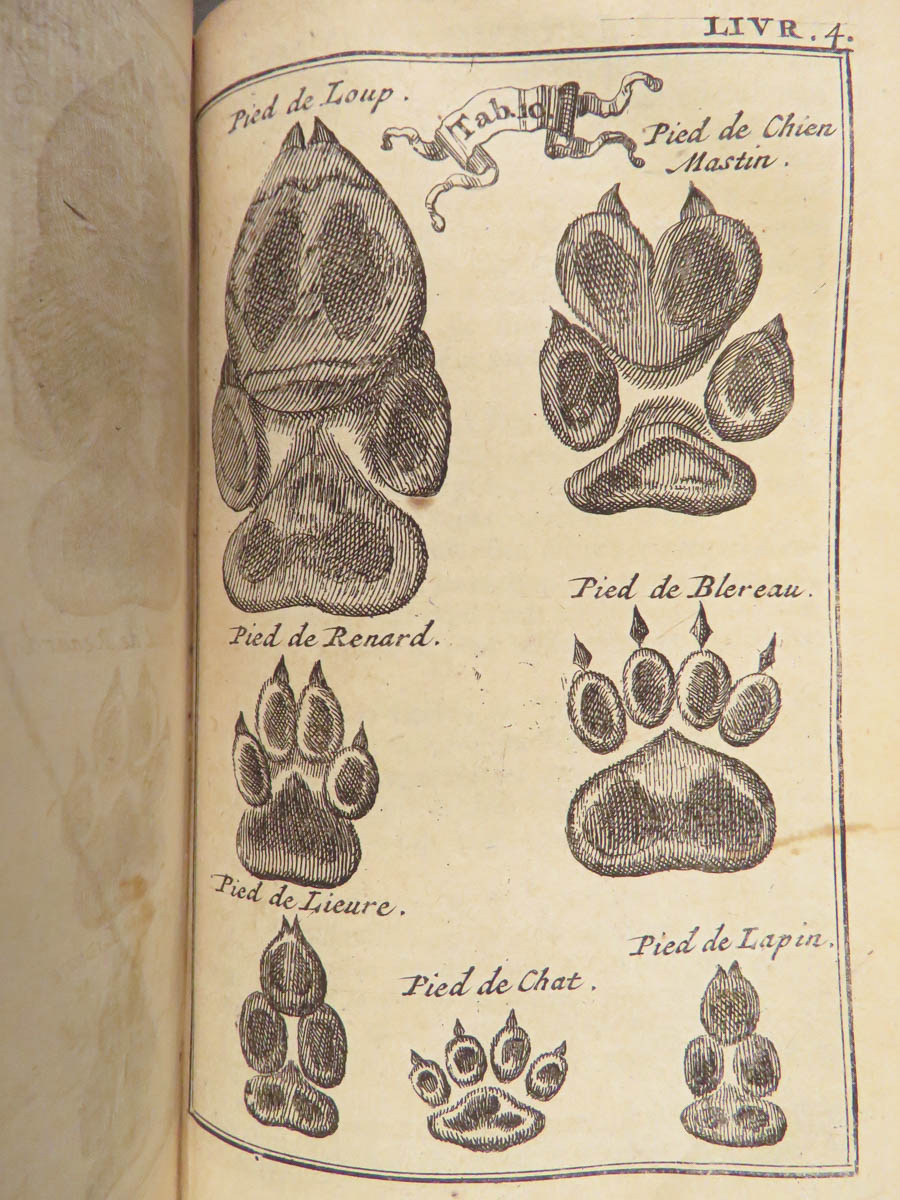 LIVR. 4.
Pied de Loup.
Tab. 10.
Pied de Chien
Mastin.
Pied de Renard.
Pied de Blereau.
Pied de Lieure.
Pied de Chat.
Pied de Lapin.